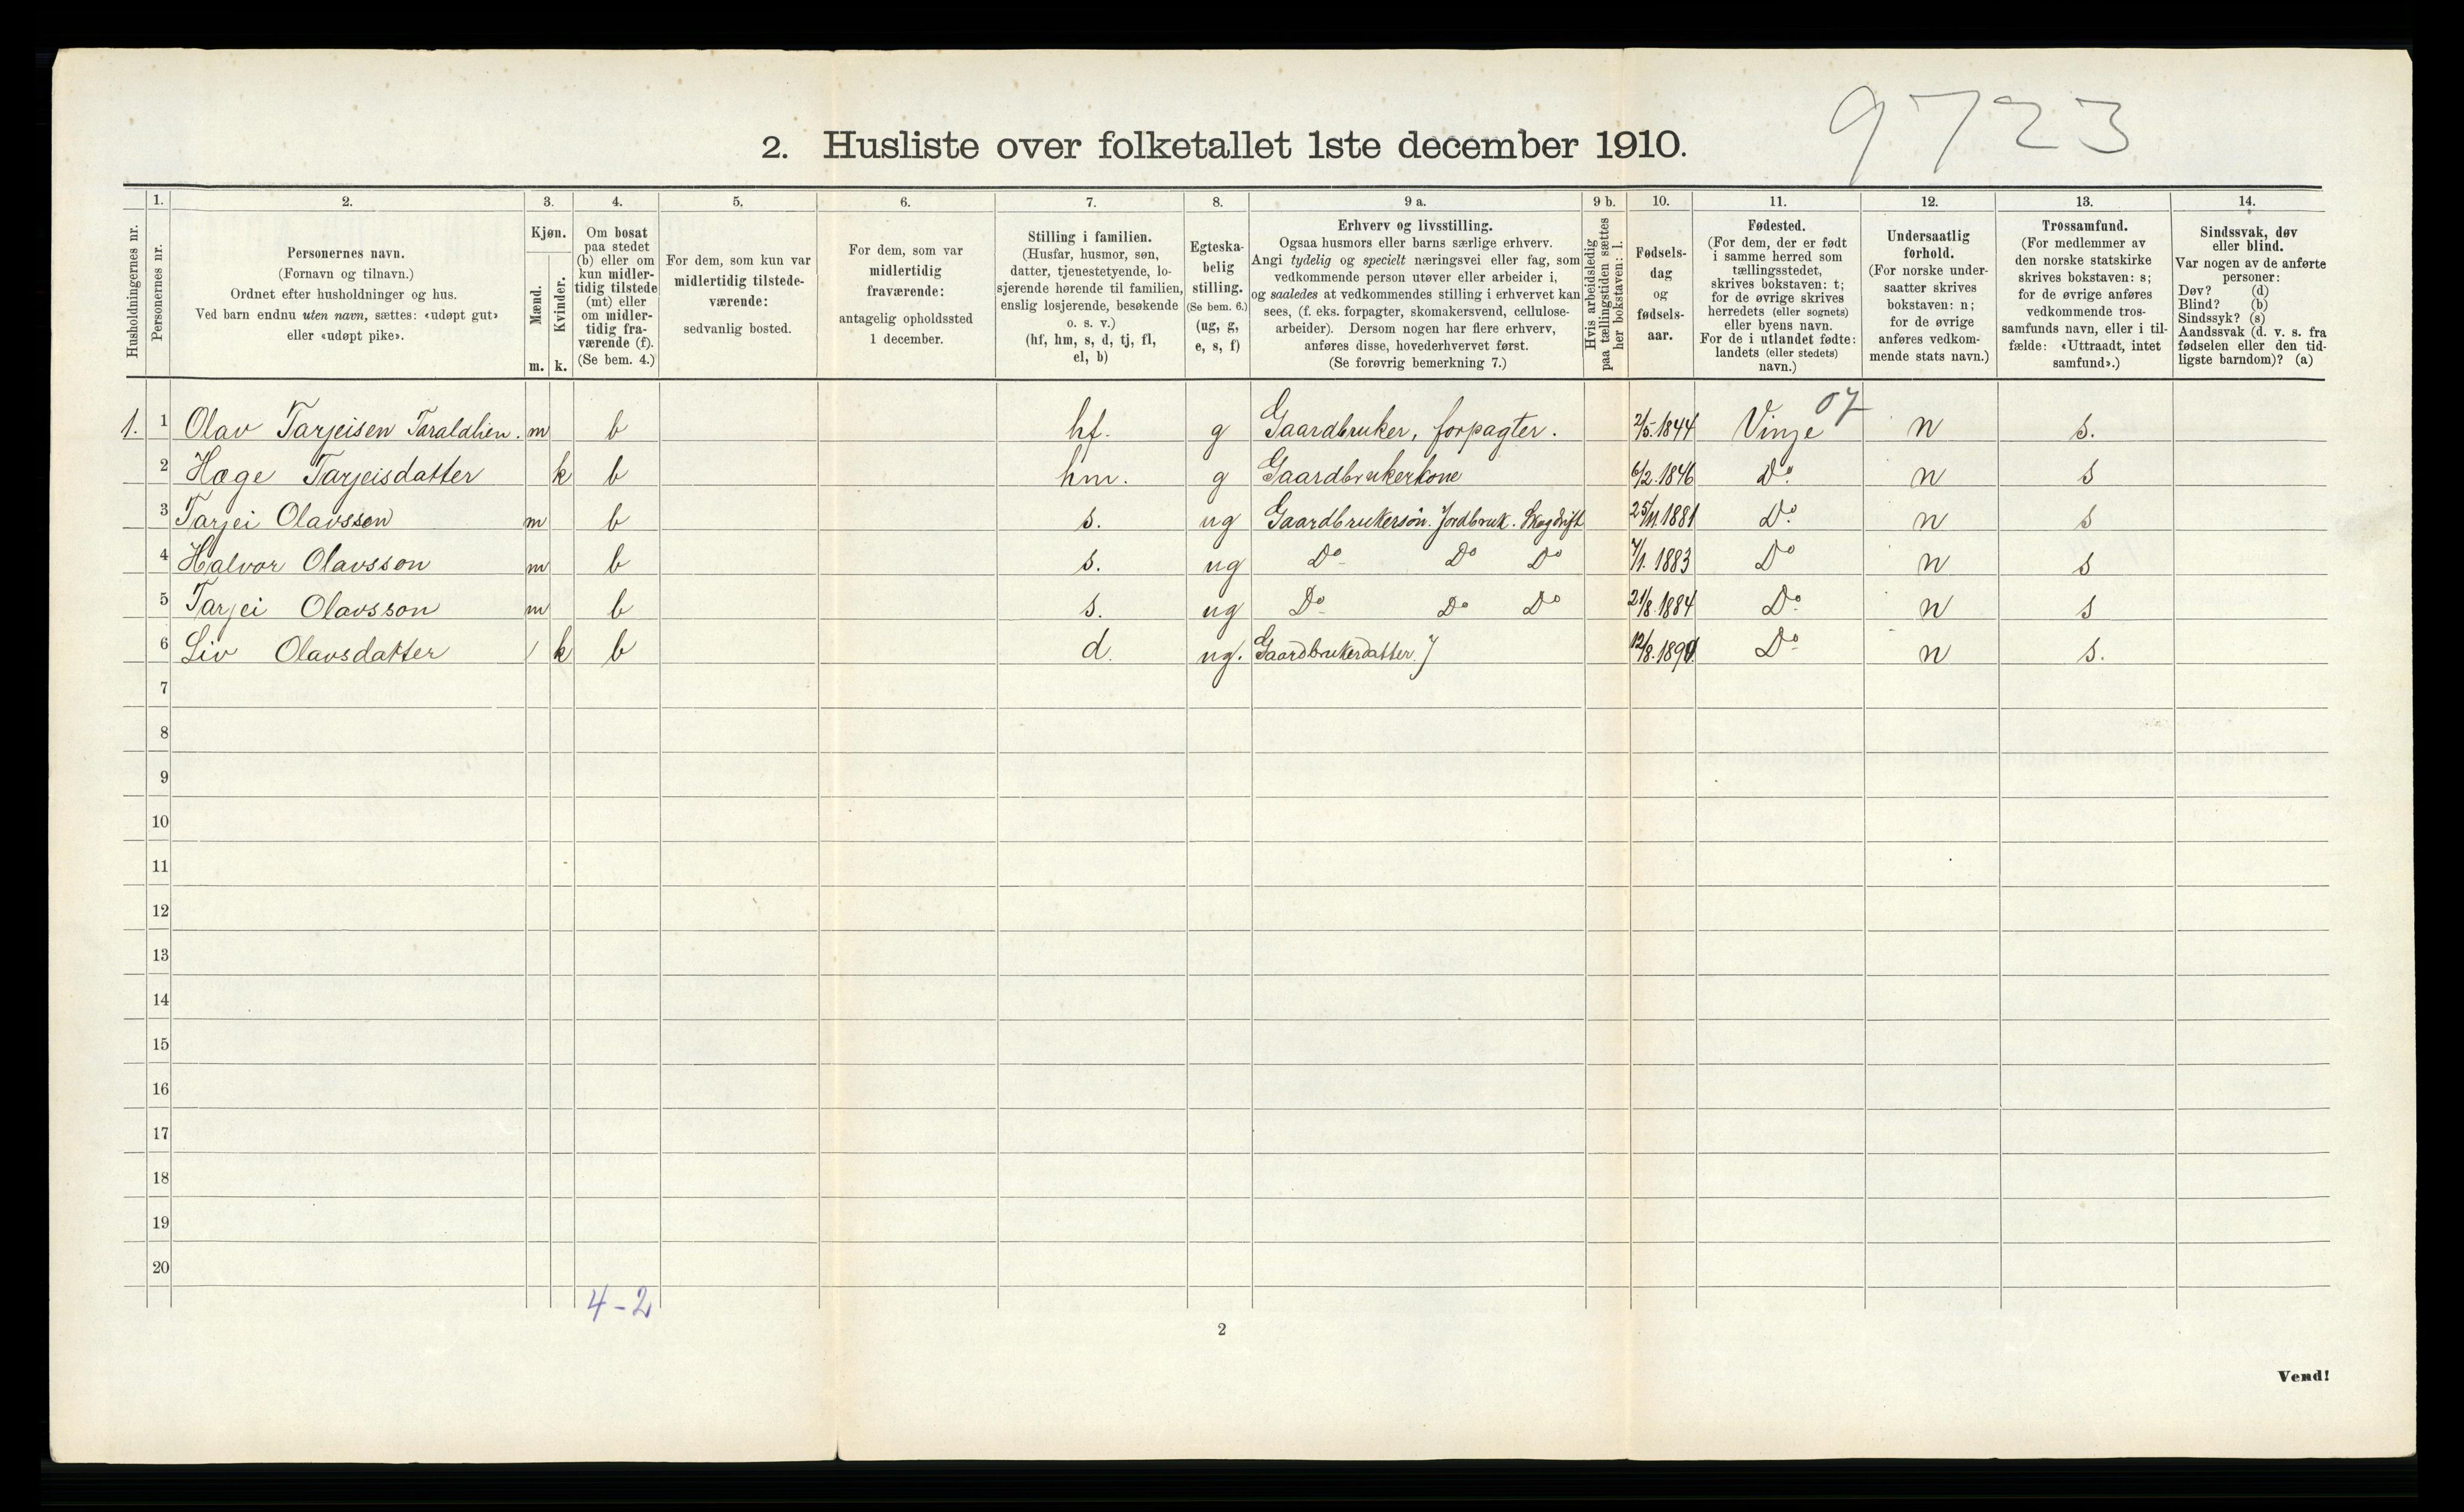 9723
2. Husliste over folketallet 1ste december 1910.
Husholdningernes nr.
1.
Personernes nr.
2.
Personernes navn.
(Fornavn og tilnavn.)
Ordnet efter husholdninger og hus.
Ved barn endnu uten navn, sættes: «udøpt gut»
eller «udøpt pike».
3.
Kjøn.
Mænd.
m.
Kvinder.
k.
4.
Om bosat
paa stedet
(b) eller om
kun midler-
tidig tilstede
(mt) eller
om midler-
tidig fra-
værende (f).
(Se bem. 4.)
5.
For dem, som kun var
midlertidig tilstede-
værende:
sedvanlig bosted.
6.
For dem, som var
midlertidig
fraværende:
antagelig opholdssted
1 december.
7.
Stilling i familien.
(Husfar, husmor, søn,
datter, tjenestetyende, lo-
sjerende hørende til familien,
enslig losjerende, besøkende
o. s. v.)
(hf, hm, s, d, tj, fl,
el, b)
8.
Egteska-
belig
stilling.
(Se bem. 6.)
(ug, g,
e, s, f)
9 a.
Erhverv og livsstilling.
Ogsaa husmors eller barns særlige erhverv.
Angi tydelig og specielt næringsvei eller fag, som
vedkommende person utøver eller arbeider i,
og saaledes at vedkommendes stilling i erhvervet kan
sees, (f. eks. forpagter, skomakersvend, cellulose-
arbeider). Dersom nogen har flere erhverv,
anføres disse, hovederhvervet først.
(Se forøvrig bemerkning 7.)
9 b.
Hvis arbeidsledig
paa tællingstiden sættes
her bokstaven: l.
10.
Fødsels-
dag
og
fødsels-
aar.
11.
Fødested.
(For dem, der er født
i samme herred som
tællingsstedet,
skrives bokstaven: t;
for de øvrige skrives
herredets (eller sognets)
eller byens navn.
For de i utlandet fødte:
landets (eller stedets)
navn.)
12.
Undersaatlig
forhold.
(For norske under-
saatter skrives
bokstaven: n;
for de øvrige
anføres vedkom-
mende stats navn.)
13.
Trossamfund.
(For medlemmer av
den norske statskirke
skrives bokstaven: s;
for de øvrige anføres
vedkommende tros-
samfunds navn, eller i til-
fælde: «Uttraadt, intet
samfund».)
14.
Sindssvak, døv
eller blind.
Var nogen av de anførte
personer:
Døv? (d)
Blind? (b)
Sindssyk? (s)
Aandssvak (d. v. s. fra
fødselen eller den tid-
ligste barndom)? (a)
1. 1 Olav Tarjeisen Taraldlien. m b hf. g Gaardbruker, forpagter. 2/5.1844 Vinje 07 n s.
2 Hæge Tarjeisdatter k b hm. g Gaardbrukerkone 6/2.1846 Do n s
3 Tarjei Olavsson m b s. ug Gaardbrukersøn. Jordbruk. Skogdrift 25/11 1881 Do n s
4 Halvor Olavsson m b s. ug Do Do Do 7/1. 1883 Do n s
5 Tarjei Olavsson m b s. ug Do Do Do 21/8.1884 Do n s
6 Liv Olavsdatter k b d. ug. Gaardbrukerdatter. J 12/8. Do n s.
7
8
9
10
11
12
13
14
15
16
17
18
19
20
4-2
2
Vend!